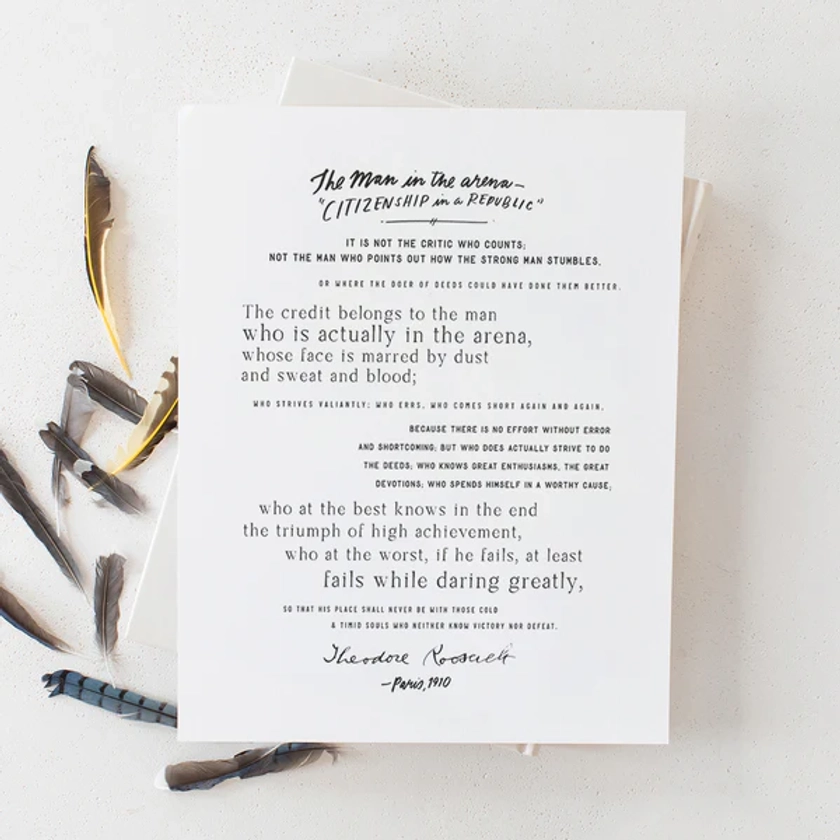 The Man in the arena—
"CITIZENSHIP in a REPUBLIC"
IT IS NOT THE CRITIC WHO COUNTS;
NOT THE MAN WHO POINTS OUT HOW THE STRONG MAN STUMBLES,
OR WHERE THE DOER OF DEEDS COULD HAVE DONE THEM BETTER.
The credit belongs to the man
who is actually in the arena,
whose face is marred by dust
and sweat and blood;
WHO STRIVES VALIANTLY; WHO ERRS, WHO COMES SHORT AGAIN AND AGAIN,
BECAUSE THERE IS NO EFFORT WITHOUT ERROR
AND SHORTCOMING; BUT WHO DOES ACTUALLY STRIVE TO DO
THE DEEDS; WHO KNOWS GREAT ENTHUSIASMS, THE GREAT
DEVOTIONS; WHO SPENDS HIMSELF IN A WORTHY CAUSE;
who at the best knows in the end
the triumph of high achievement,
who at the worst, if he fails, at least
fails while daring greatly,
SO THAT HIS PLACE SHALL NEVER BE WITH THOSE COLD
& TIMID SOULS WHO NEITHER KNOW VICTORY NOR DEFEAT.
Theodore Roosevelt
—Paris, 1910